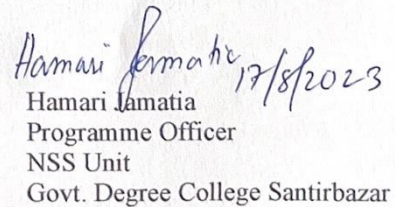 Hamari Jamatia 17/8/2023
Hamari Jamatia
Programme Officer
NSS Unit
Govt. Degree College Santirbazar